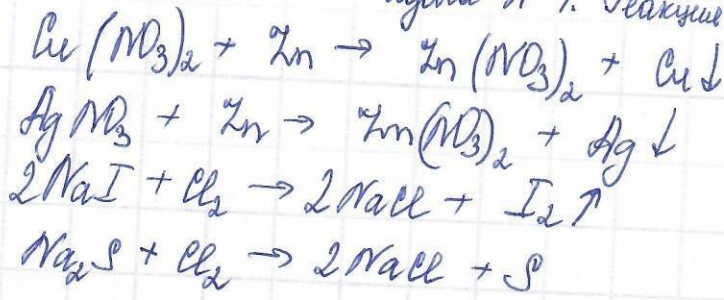 Реакции
Cu(NO₃)₂ + Zn → Zn(NO₃)₂ + Cu↓
AgNO₃ + Zn → Zn(NO₃)₂ + Ag↓
2NaI + Cl₂ → 2NaCl + I₂↑
Na₂S + Cl₂ → 2NaCl + S